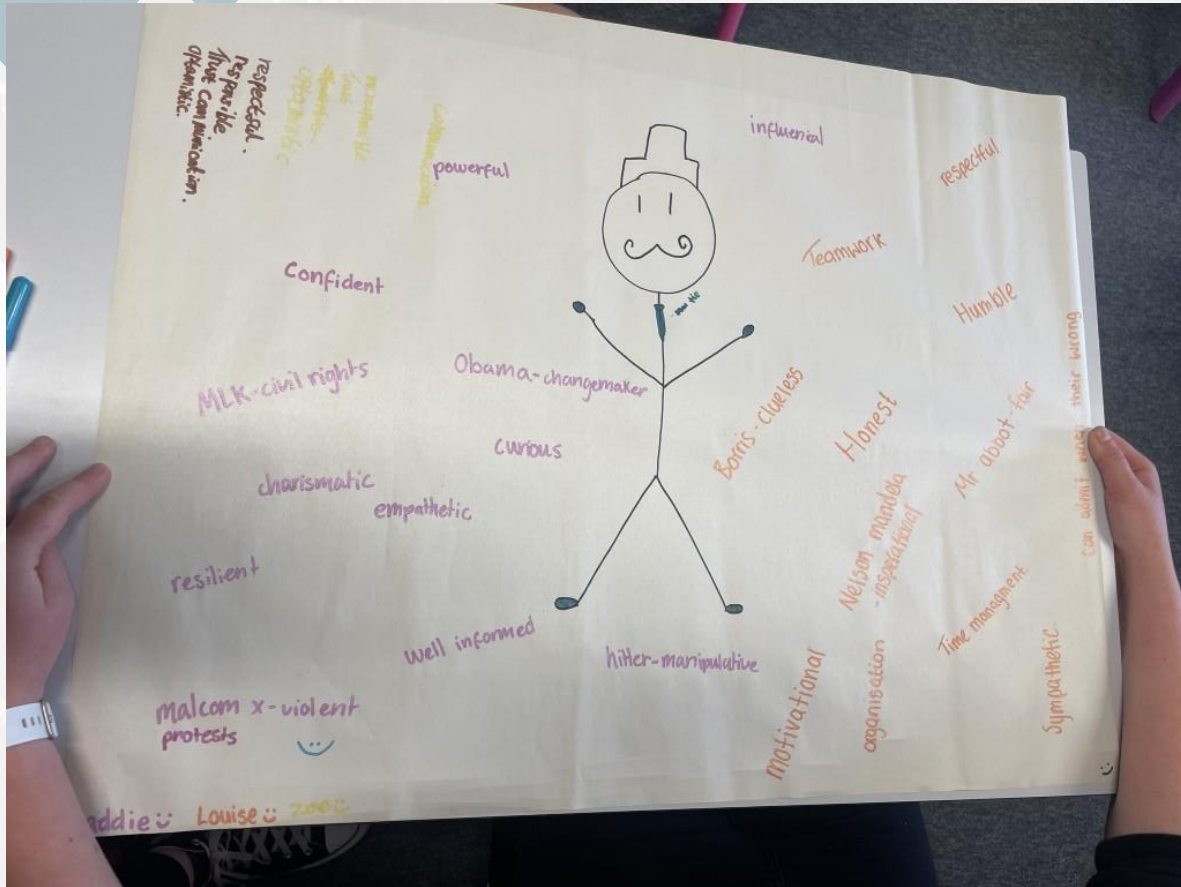 respectful.
responsible
Trust communication.
optamistic.
communication
powerful
influenial
respectful
Teamwork
Confident
Humble
MLK-civil rights
Obama-changemaker
Borris-clueless
Honest
Mr aboot-fair
can admit when their wrong
curious
charismatic
empathetic
Nelson mandela
-insperational
resilient
Time managment.
well informed
hitler-manipulative
motivational
organisation
Sympathetic.
malcom x-violent
protests
addie
Louise
zoe